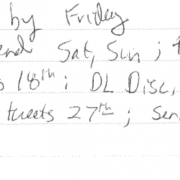 by Friday
end Sat, Sun ;
18th ; DL Disc,
tweets 27th ; Sen